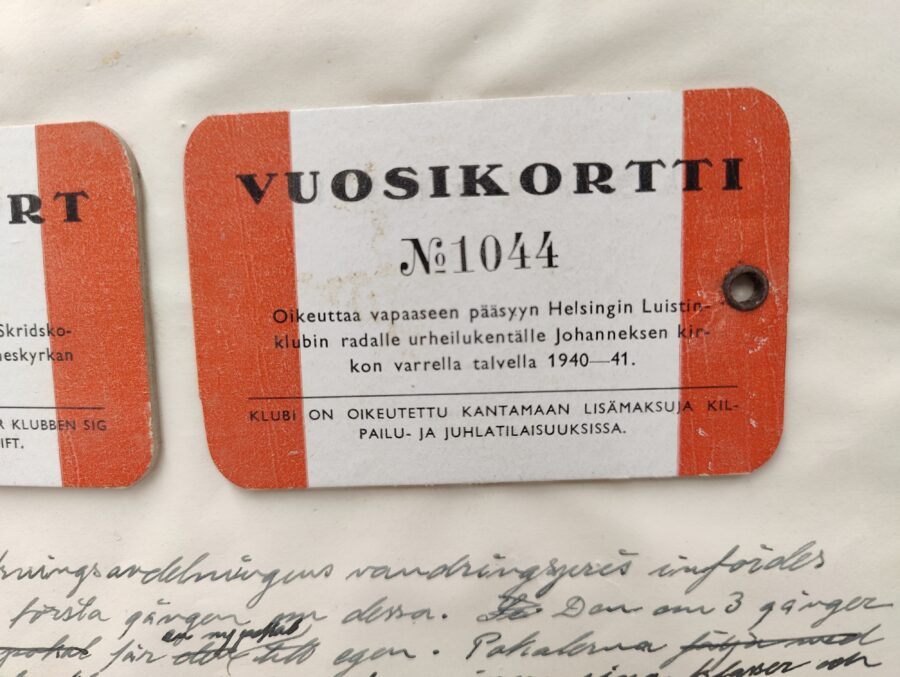 RT
Skridsko-
neskyrkan
R KLUBBEN SIG
IFT.
VUOSIKORTTI
№1044
Oikeuttaa vapaaseen pääsyyn Helsingin Luistin-
klubin radalle urheilukentälle Johanneksen kir-
kon varrella talvella 1940—41.
KLUBI ON OIKEUTETTU KANTAMAAN LISÄMAKSUJA KIL-
PAILU- JA JUHLATILAISUUKSISSA.
vandringspris infördes
första gången om dessa. Den om 3 gånger
får till egen. Pokalerna
klasser och